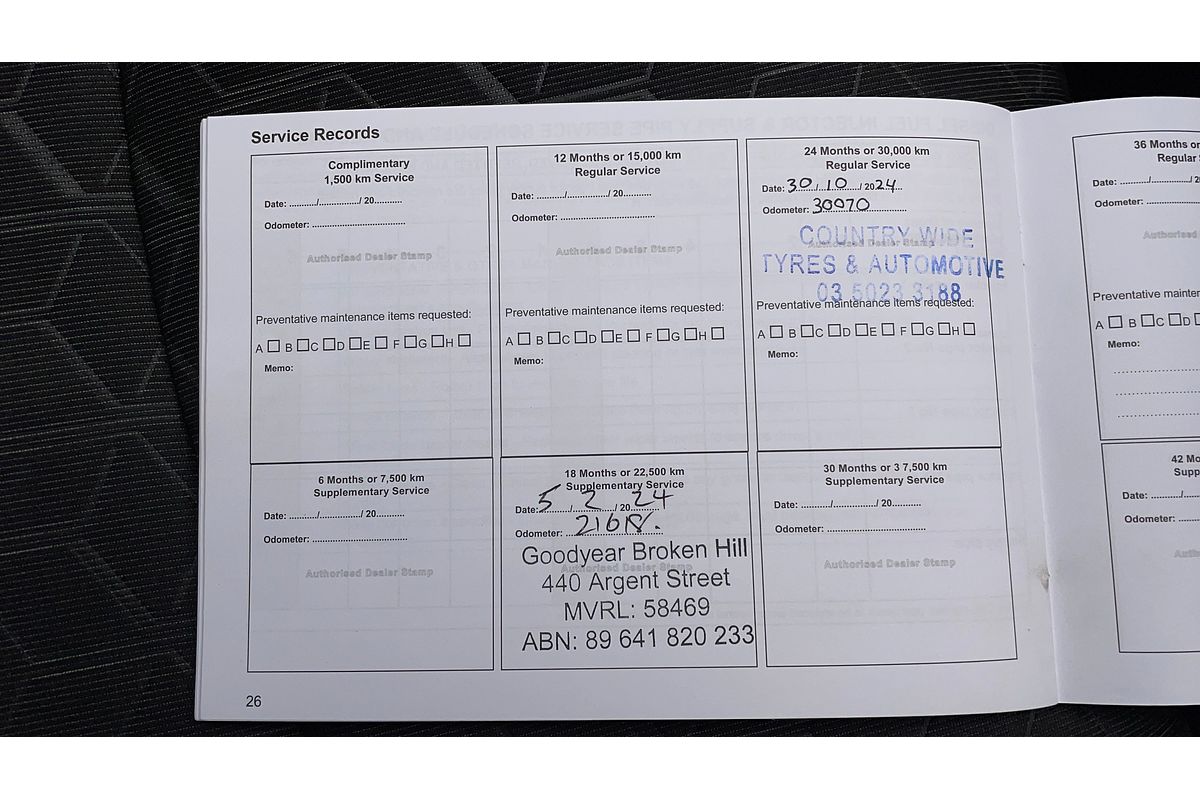 Service Records
Complimentary
1,500 km Service
Date: ........../................/ 20..........
Odometer: ...................................
Authorised Dealer Stamp
Preventative maintenance items requested:
A □ B □ C □ D □ E □ F □ G □ H □
Memo:
12 Months or 15,000 km
Regular Service
Date: ........../................/ 20..........
Odometer: ...................................
Authorised Dealer Stamp
Preventative maintenance items requested:
A □ B □ C □ D □ E □ F □ G □ H □
Memo:
24 Months or 30,000 km
Regular Service
Date: 30 / 10 / 2024
Odometer: 30070
Authorised Dealer Stamp
COUNTRY WIDE
TYRES & AUTOMOTIVE
03 5023 3188
Preventative maintenance items requested:
A □ B □ C □ D □ E □ F □ G □ H □
Memo:
6 Months or 7,500 km
Supplementary Service
Date: ........../................/ 20..........
Odometer: ...................................
Authorised Dealer Stamp
18 Months or 22,500 km
Supplementary Service
Date: 5 / 2 / 20 24
Odometer:
Authorised Dealer Stamp
Goodyear Broken Hill
440 Argent Street
MVRL: 58469
ABN: 89 641 820 233
30 Months or 3 7,500 km
Supplementary Service
Date: ........../................/ 20..........
Odometer: ...................................
Authorised Dealer Stamp
26
36 Months or
Regular
Date: ........../................/
Odometer: ..................
Authorised
Preventative maintenance
A □ B □ C □ D
Memo:
42
Date: ........../
Odometer: ..........